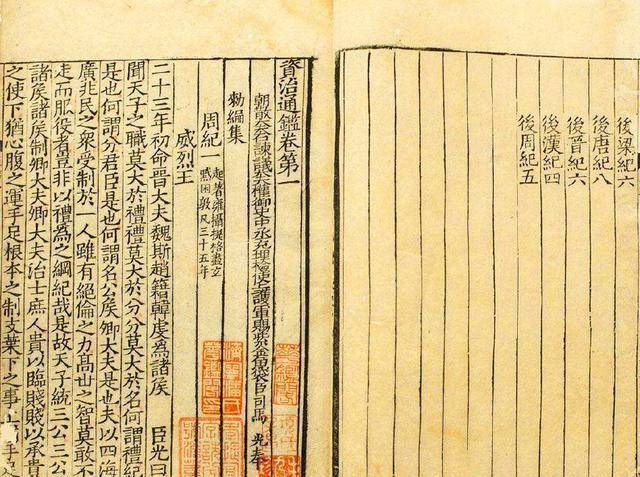 後梁紀六
後唐紀八
後晉紀六
後漢紀四
後周紀五
資治通鑑卷第一
朝散大夫右諫議大夫權御史中丞充理檢使上護軍賜紫金魚袋臣司馬 光奉
勑編集
周紀一
起著雍攝提格盡玄
黓困敦凡三十五年
威烈王
二十三年初命晉大夫魏斯趙籍韓虔為諸矦 臣光曰
聞天子之職莫大於禮禮莫大於分分莫大於名何謂禮紀
是也何謂分君臣是也何謂名公矦卿大夫是也夫以四海
廣兆民之衆受制於一人雖有絕倫之力髙丗之智莫敢不
走而服役者豈非以禮為之綱紀哉是故天子統三公三公
諸矦諸矦制卿大夫卿大夫治士庶人貴以臨賤賤以承貴
之使下猶心腹之運手足根本之制支葉下之事上猶手足